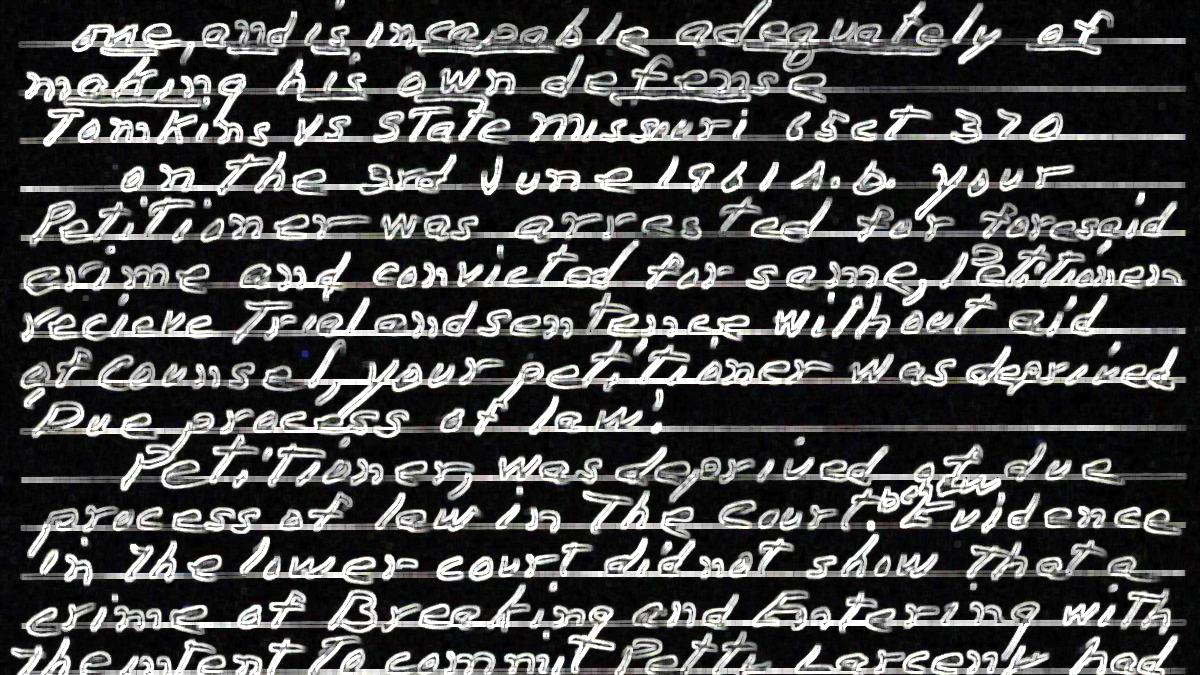 one, and is incapable adequately of
making his own defense
Tomkins vs State Missouri 65ct 370
on the 3rd June 1961 A.D. your
Petitioner was arrested for foresaid
crime and convicted for same, Petitioner
recieve Trial and sentence without aid
of Counsel, your petitioner was deprived
'Due process of law!
Petitioner, was deprived of due
process of law in The Court. Evidence
in the lower court did not show that a
crime of Breaking and Entering with
the intent To commit Petty Larceny had